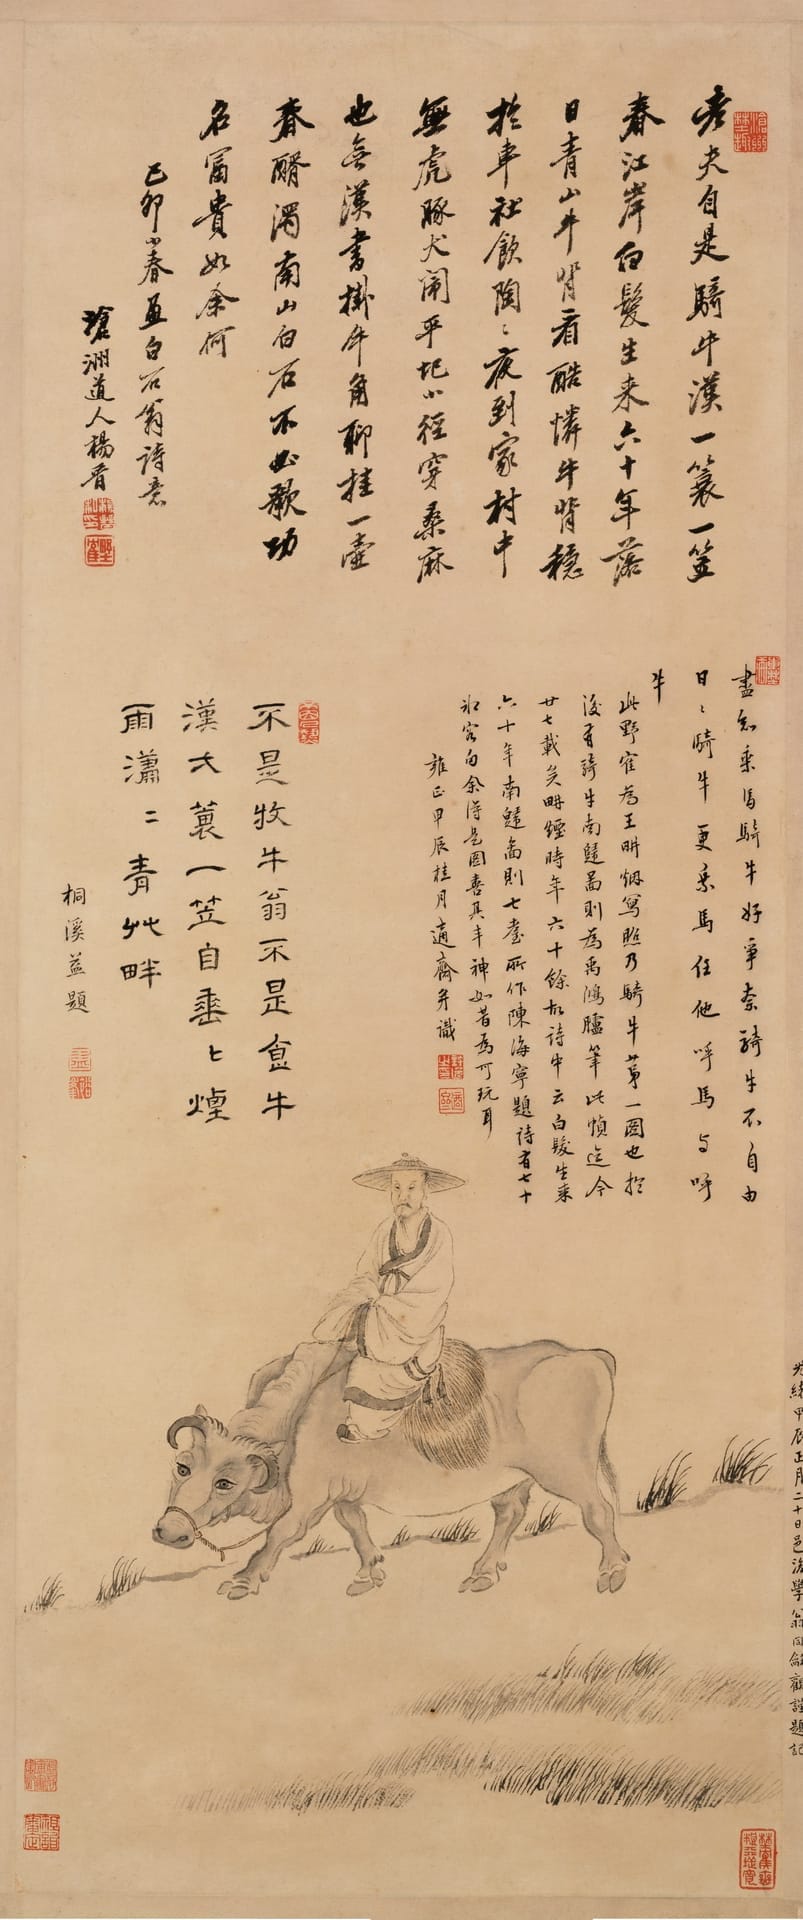 老夫自是騎牛漢一蓑一笠
春江岸白髮生来六十年落
日青山牛背看酷憐牛背穩
於車社飲陶〻夜到家村中
無虎豚犬閙平圯小徑穿桑麻
也無漢書掛牛角聊挂一壺
春醑濁南山白石不必歌功
名富貴如余何
己卯小春画白石翁诗意
滄洲道人楊晋
盡知乘馬騎牛好争奈騎牛不自由
日〻騎牛更乘馬任他呼馬与呼
牛
此野崔為王畊烟寫照乃騎牛第一圖也於
後有騎牛南歸啚則為禹鴻臚筆此幀迄今
廿七載矣畊煙時年六十餘故诗中云白髮生来
六十年南歸啚則七耋所作陳海寧題诗有七十
句余得是圖喜其丰神如昔為可玩耳
雍正甲辰桂月適齋并識
不是牧牛翁不是食牛
漢大蓑一笠自垂〻煙
雨瀟〻青艸畔
桐溪益題
光緒甲辰正月二十日邑後學翁同龢觀謹題記